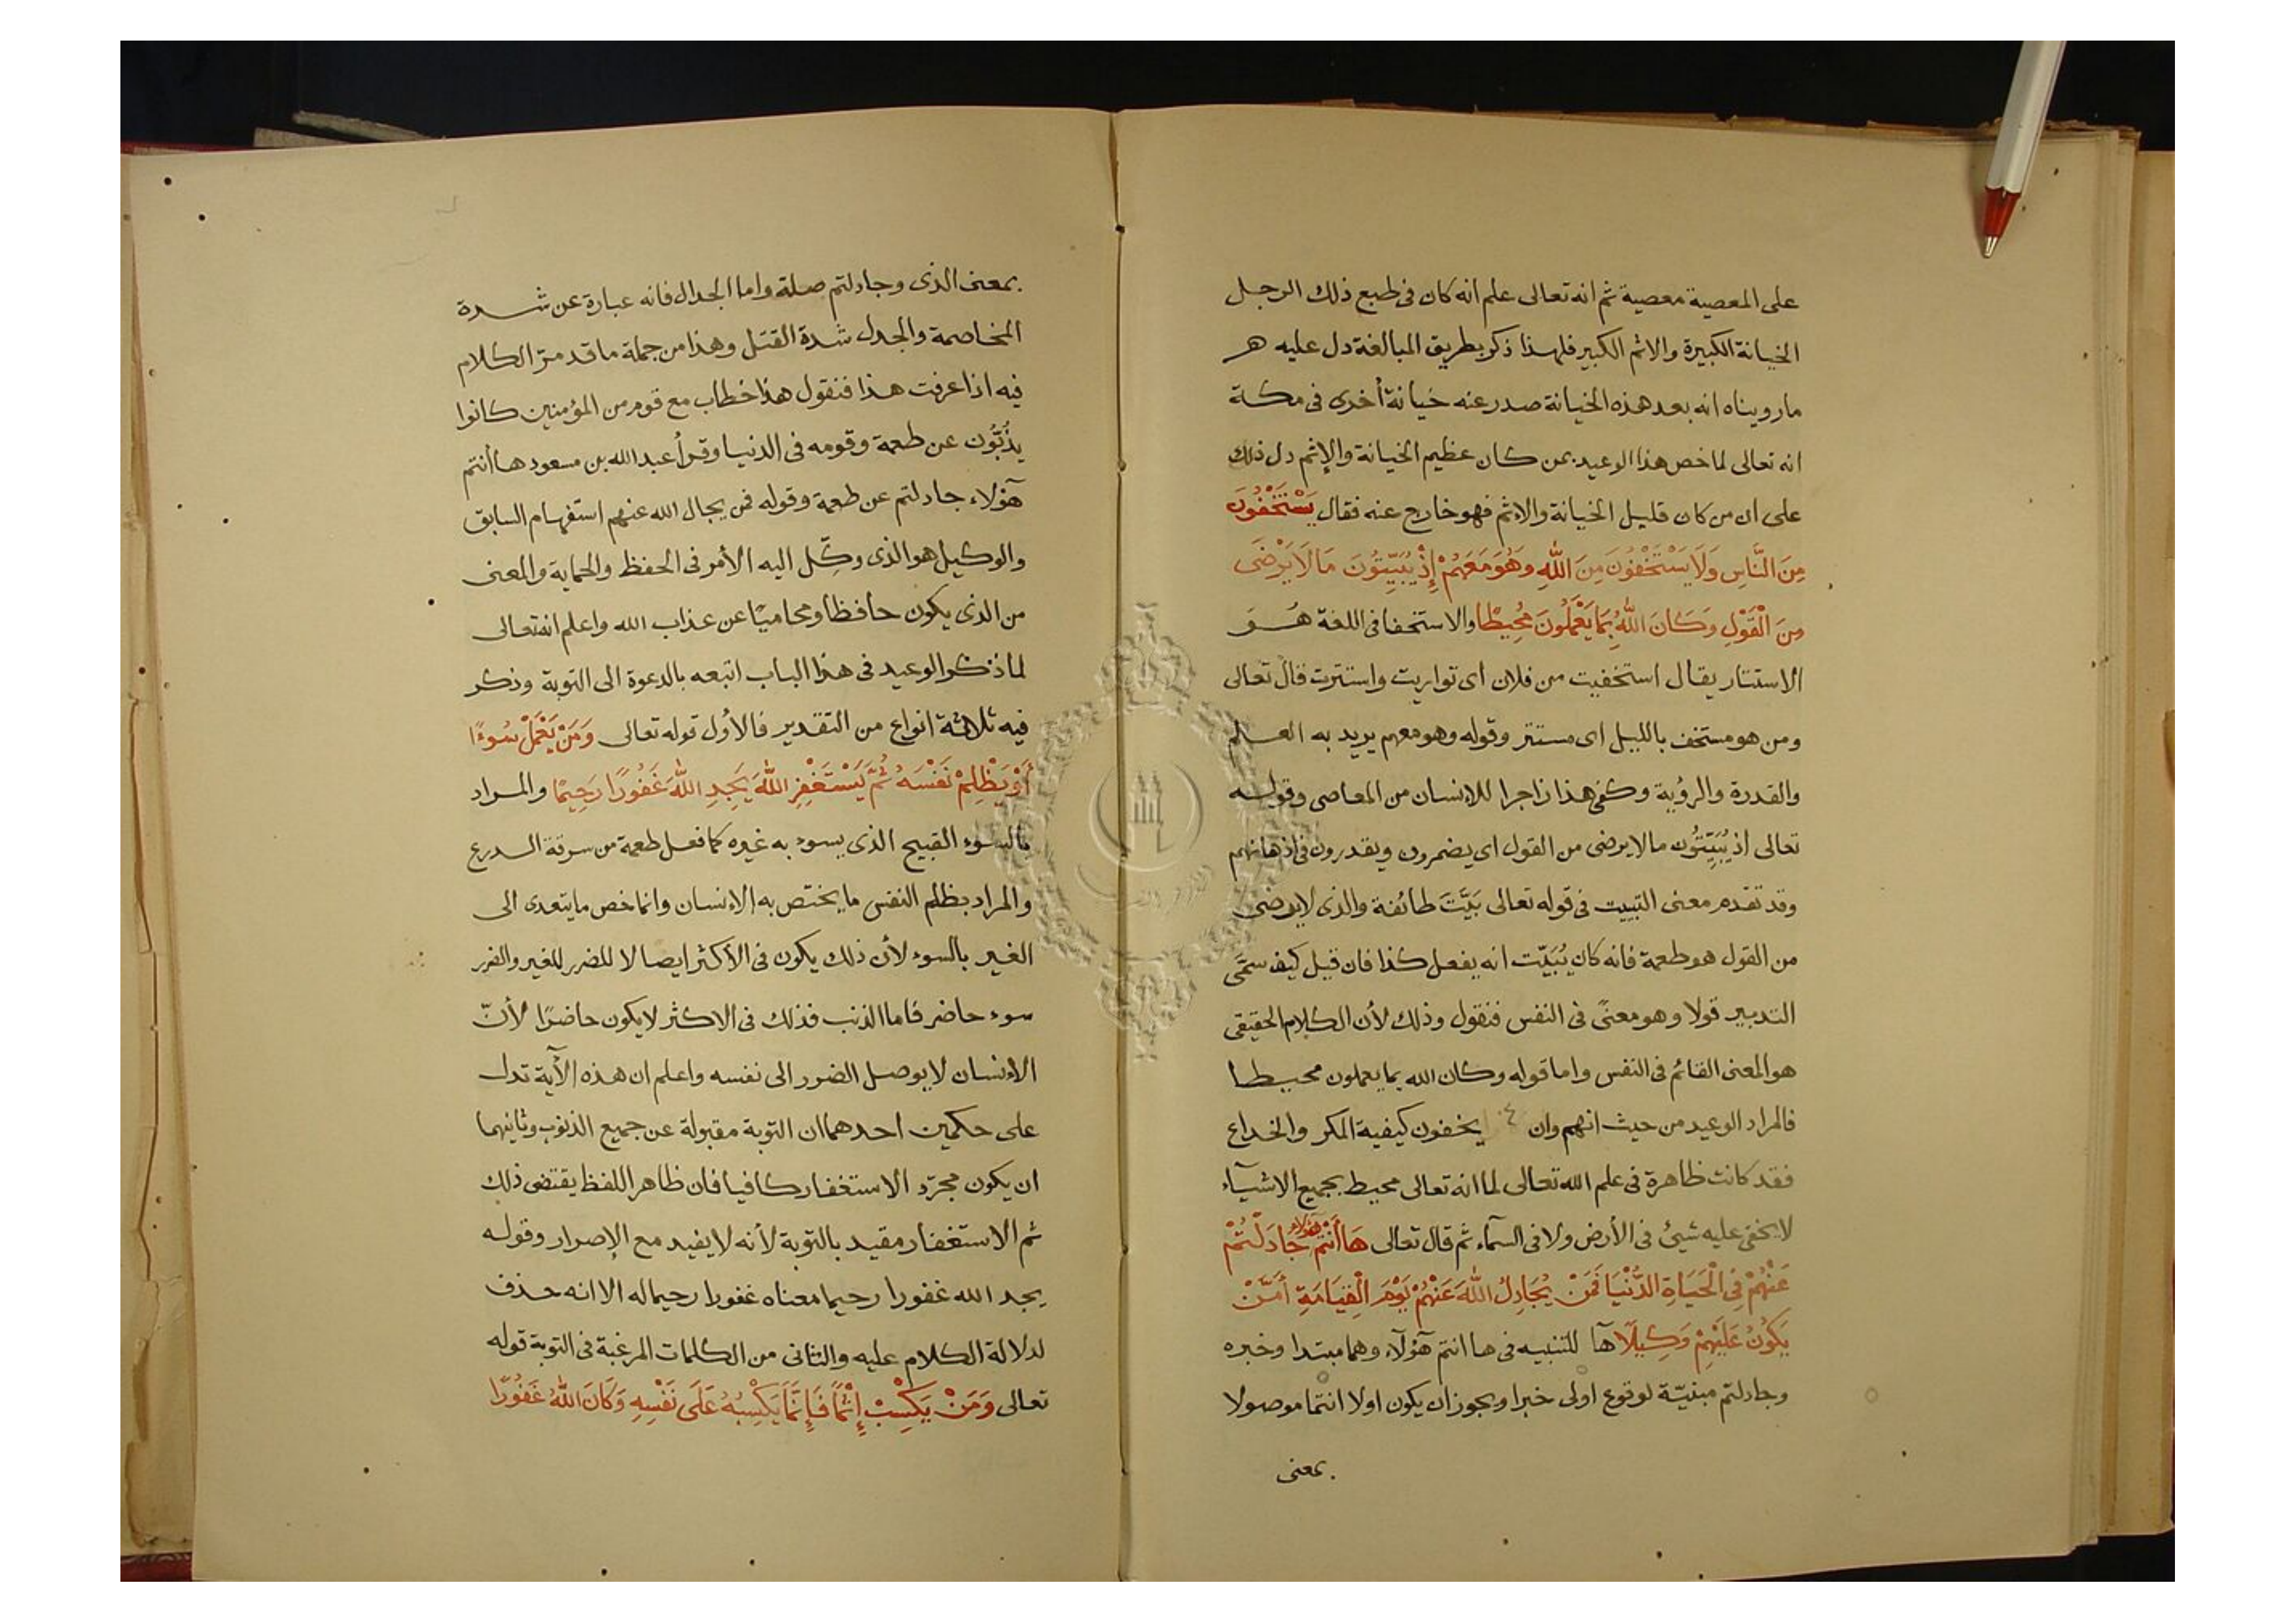 على المعصية معصية ثم انه تعالى علم انه كان فى طبع ذلك الرجل
الخيانة الكبيرة والاثم الكبير فلهذا ذكر بطريق المبالغة دل عليه هر
مارويناه انه بعد هذه الخيانة صدر عنه خيانة أخرى فى مكة
انه تعالى لما خص هذا الوعيد بمن كان عظيم الخيانة والإثم دل ذلك
على ان من كان قليل الخيانة والاثم فهو خارج عنه فقال يَسْتَخْفُونَ
مِنَ النَّاسِ وَلَا يَسْتَخْفُونَ مِنَ اللهِ وَهُوَ مَعَهُمْ إِذْ يُبَيِّتُونَ مَا لَا يَرْضَى
مِنَ الْقَوْلِ وَكَانَ اللهُ بِمَا يَعْمَلُونَ مُحِيطًا والاستخفا فى اللغة هُوَ
الاستتار يقال استخفيت من فلان اى تواريت واستترت قال تعالى
ومن هو مستخف بالليل اى مستتر وقوله وهو معهم يريد به العلم
والقدرة والرؤية وكفى هذا زاجرا للانسان من المعاصى وقوله
تعالى اذ يُبَيِّتُون مالا يرضى من القول اى يضمرون ويقدرون فى اذهانهم
وقد تقدم معنى التبييت فى قوله تعالى بَيَّتَ طائفة والذى لا يرضى
من القول هو طعمة فانه كان يُبَيِّت انه يفعل كذا فان قيل كيف سمّى
التدبير قولا وهو معنىً فى النفس فنقول وذلك لأن الكلام الحقيقى
هو المعنى القائم فى النفس واما قوله وكان الله بما يعملون محيطا
فالمراد الوعيد من حيث انهم وان يخفون كيفية المكر والخداع
فقد كانت ظاهرة فى علم الله تعالى لما انه تعالى محيط بجميع الاشياء
لا يخفى عليه شيئ فى الأرض ولا فى السمآء ثم قال تعالى هَا أَنْتُمْ هؤلاء جَادَلْتُمْ
عَنْهُمْ فِى الْحَيَاةِ الدُّنْيَا فَمَنْ يُجَادِلُ اللهَ عَنْهُمْ يَوْمَ الْقِيَامَةِ أَمَّنْ
يَكُونُ عَلَيْهِمْ وَكِيلًا هآ للتنبيه فى ها انتم هؤلآء وهما مبتدا وخبره
وجادلتم مبنيّة لوقوع اولى خبرا ويجوز ان يكون اولا انتما موصولا
بمعنى
بمعنى الذى وجادلتم صلة واما الجدال فانه عبارة عن شدة
المخاصمة والجدل شدة القتل وهذا من جملة ما قد مرّ الكلام
فيه اذا عرفت هذا فنقول هذا خطاب مع قوم من المؤمنين كانوا
يذُبُّون عن طعمة وقومه فى الدنيا وقرأ عبد الله بن مسعود ها أنتم
هؤلاء جادلتم عن طعمة وقوله فمن يجال الله عنهم استفهام السابق
والوكيل هو الذى وكّل اليه الأمر فى الحفظ والحماية والمعنى
من الذى يكون حافظا ومحاميًا عن عذاب الله واعلم انه تعالى
لما ذكر الوعيد فى هذا الباب اتبعه بالدعوة الى التوبة وذكر
فيه ثلاثة انواع من التقدير فالأول قوله تعالى وَمَنْ يَعْمَلْ سُوءًا
أَوْ يَظْلِمْ نَفْسَهُ ثُمَّ يَسْتَغْفِرِ اللهَ يَجِدِ اللهَ غَفُورًا رَحِيمًا والمراد
بالسوء القبيح الذى يسوء به غيره كما فعل طعمة من سرقة الدرع
والمراد بظلم النفس ما يختص به الانسان وانما خص ما يتعدى الى
الغير بالسوء لأن ذلك يكون فى الأكثر ايصالا للضرر للغير والضرر
سوء حاضر فاما الذنب فذلك فى الاكثر لا يكون حاضرًا لأنّ
الانسان لا يوصل الضرر الى نفسه واعلم ان هذه الآية تدل
على حكمين احدهما ان التوبة مقبولة عن جميع الذنوب وثانيهما
ان يكون مجرّد الاستغفار كافيا فان ظاهر اللفظ يقتضى ذلك
ثم الاستغفار مقيد بالتوبة لأنه لا يفيد مع الإصرار وقوله
يجد الله غفورا رحيما معناه غفورا رحيما له الا انه حذف
لدلالة الكلام عليه والثانى من الكلمات المرغبة فى التوبة قوله
تعالى وَمَنْ يَكْسِبْ إِثْمًا فَإِنَّمَا يَكْسِبُهُ عَلَى نَفْسِهِ وَكَانَ اللهُ غَفُورًا